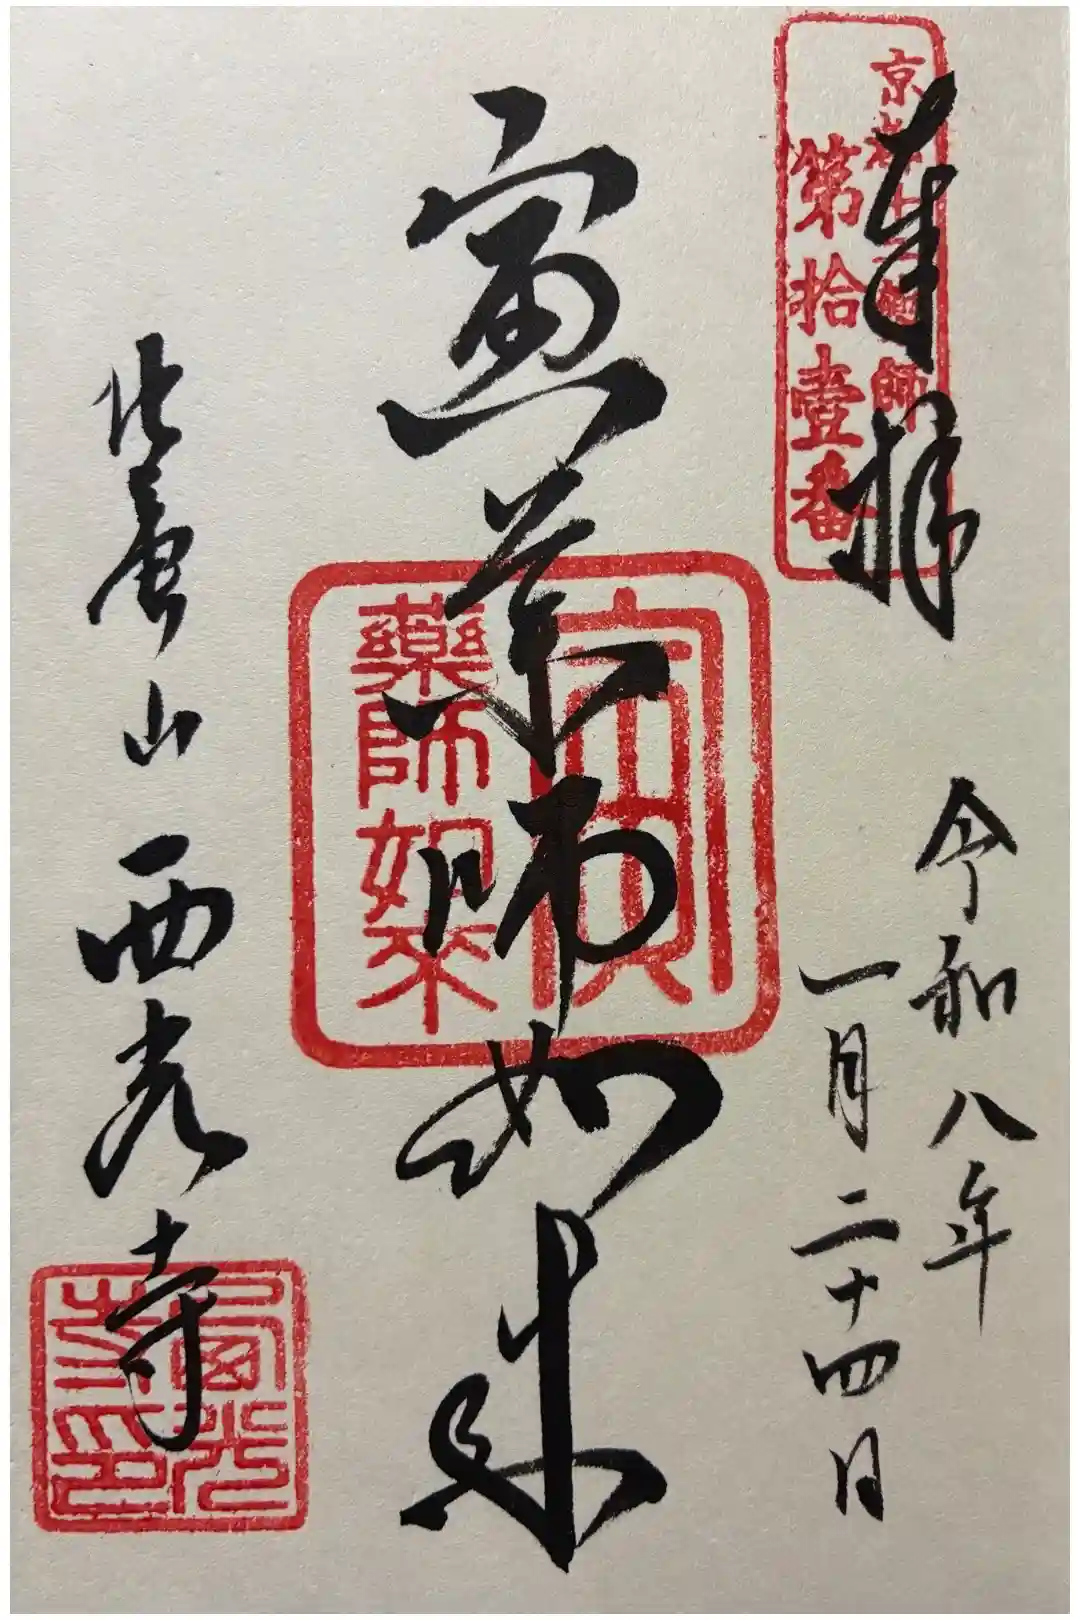 奉拝
京都十二薬師
第拾壹番
令和八年
一月二十四日
寅薬師如来
寅
藥師如来
華臺山 西光寺
西光
寺印